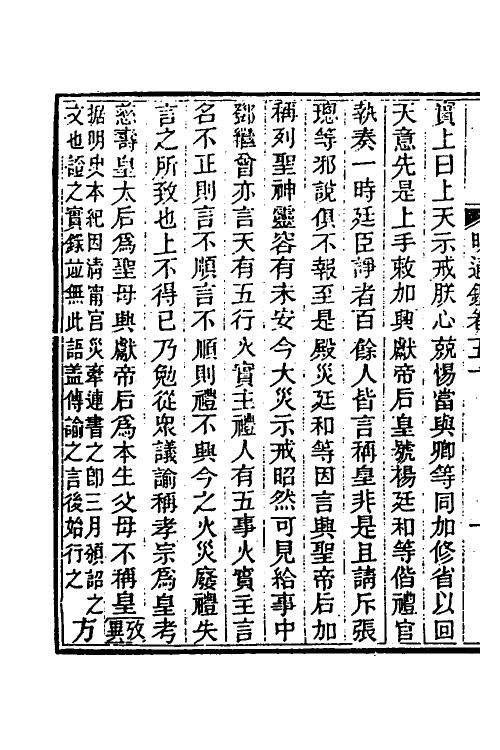 明通鑑卷五十
實上曰上天示戒朕心兢惕當與卿等同加修省以回
天意先是上手敕加興獻帝后皇號楊廷和等偕禮官
執奏一時廷臣諍者百餘人皆言稱皇非是且請斥張
璁等邪說俱不報至是殿災廷和等因言興聖帝后加
稱列聖神靈容有未安今大災示戒昭然可見給事中
鄧繼曾亦言天有五行火實主禮人有五事火實主言
名不正則言不順言不順則禮不興今之火災廢禮失
言之所致也上不得已乃勉從眾議諭稱孝宗爲皇考
慈壽皇太后爲聖母興獻帝后爲本生父母不稱皇攷異
据明史本紀因清甯宮災牽連書之卽三月頒詔之
文也證之實錄並無此語蓋傳諭之言後始行之
方